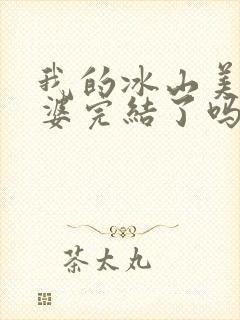 我的冰山美
婆完結了吗
茶太丸